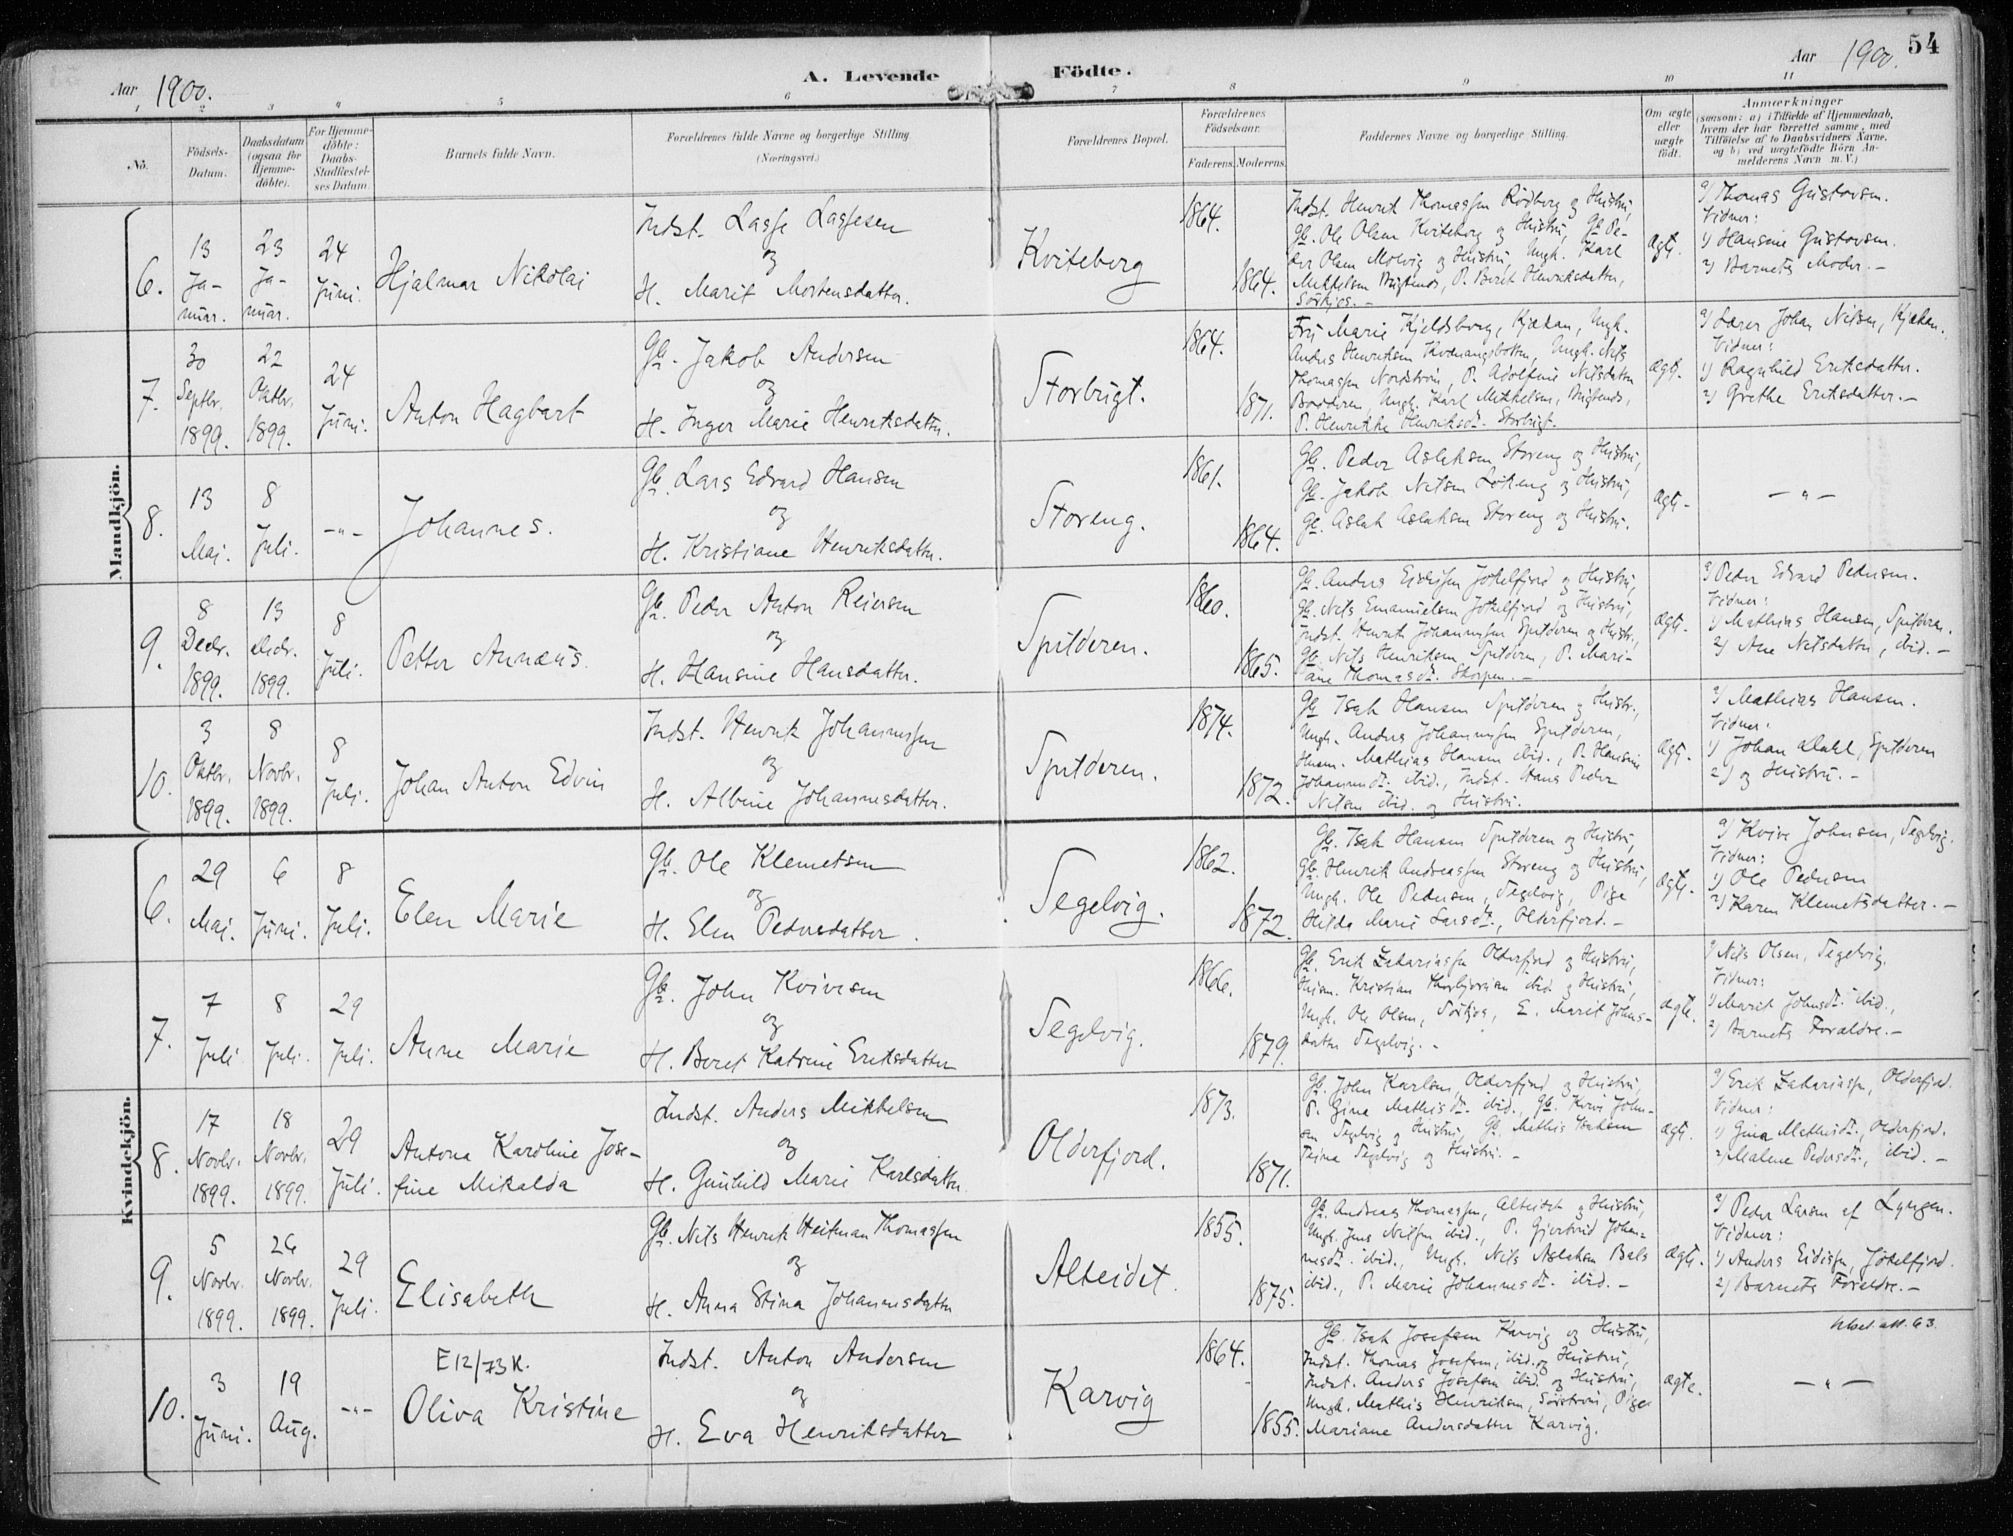 Aar 1900.
A. Levende Födte.
Aar 1900.
54
1 2 3 4 5 6 7 8 9 10 11
No.
Födsels-
Datum.
Daabsdatum
(ogsaa for
Hjemme-
döbte).
For Hjemme-
döbte:
Daabs-
Stadfæstel-
ses Datum.
Barnets fulde Navn.
Forældrenes fulde Navne og borgerlige Stilling
(Næringsvei.)
Forældrenes Bopæl.
Forældrenes
Födselsaar.
Faderens. Moderens.
Faddernes Navne og borgerlige Stilling.
Om ægte
eller
uægte
födt.
Anmærkninger
(saasom: a) i Tilfælde af Hjemmedaab,
hvem der har forrettet samme, med
Tilföielse af to Daabsvidners Navne,
og b) ved uægtefödte Börn An-
melderens Navn m. V.)
Mandkjön.
6.
13
Ja-
nuar.
23
Ja-
nuar.
24
Juni.
Hjalmar Nikolai
Indst. Lasse Lassesen
og
H. Marit Mortensdatter.
Kviteberg
1864.
1864.
Indst. Henrik Thomassen Rödberg og Hustru,
Gb. Ole Olsen Kviteberg og Hustru, Gb. Pe-
der Olsen Molvig og Hustru, Ungk. Karl
Mikkelsen Bugtnes, P. Berit Henriksdatter,
Sörkjos.-
ægt.
a) Thomas Gustavsen.
Vidner:
1) Hansine Gustavsen.
2) Barnets Moder.-
7.
30
Septbr.
1899.
22
Oktbr.
1899.
24
Juni.
Anton Hagbart
Gb. Jakob Andersen
og
H. Inger Marie Henriksdatter.
Storbugt.
1864.
1871.
Frk Marie Kjeldsberg, Kjækan, Ungk.
Anders Henriksen Kvænangsbotten, Ungk. Nils
Thomassen Nordström, P. Adolfine Nilsdatter
Ungk. Karl Mikkelsen, Bugtnes,
P. Henrikke Henriksdt. Storbugt.
ægt.
a) Lærer Johan Nilsen, Kjækan.
Vidner:
1) Ragnhild Eriksdatter.
2) Grethe Eriksdatter.-
8.
13
Mai.
8
Juli.
-"-
Johannes.
Gb. Lars Edvard Hansen
og
H. Kristiane Henriksdatter.
Storeng.
1861.
1864.
Gb. Peder Aslaksen Storeng og Hustru,
Gb. Jakob Nilsen Lökeng og Hustru,
Gb. Aslak Aslaksen Storeng og Hustru.
ægt.
-"-
9.
8
Decbr.
1899.
13
Decbr.
1899.
8
Juli.
Petter Annæus.
Gb. Peder Anton Reiersen
og
H. Hansine Hansdatter.
Spilderen.
1860.
1865.
Gb. Anders Eidisen Jökelfjord og Hustru,
Gb. Nils Emanuelsen Jökelfjord og Hustru,
Indst. Henrik Johannessen Spilderen og Hustr.,
Gb. Nils Henriksen Spilderen, P. Mari-
ane Thomasdt. Skorpen.-
ægt.
a) Peder Edvard Pedersen.
Vidner:
1) Mathias Hansen, Spilderen.
2) Ane Nilsdatter, ibid.-
10.
3
Oktbr.
1899.
8
Novbr.
1899.
8
Juli.
Johan Anton Edvin
Indst. Henrik Johannessen
og
H. Albine Johannesdatter.
Spilderen.
1874.
1872.
Gb. Isak Hansen Spilderen og Hustr.,
Ungk. Anders Johannessen Spilderen,
Husm. Mathias Hansen ibid., P. Hansine
Johannesdt. ibid., Indst. Hans Peder
Nilsen ibid. og Hustru.
ægt.
a) Mathias Hansen.
Vidner:
1) Johan Dahl, Spilderen
2) og Hustru.-
Kvindekjön.
6.
29
Mai.
6
Juni.
8
Juli.
Elen Marie
Gb. Ole Klemetsen
og
H. Elen Pedersdatter.
Segelvig.
1862.
1872.
Gb. Isak Hansen Spilderen og Hustru,
Gb. Henrik Andreassen Storeng og Hustru,
Ungk. Ole Pedersen, Segelvig, Pige
Hilda Marie Larsdt., Olderfjord.-
ægte.
a) Kvive Johnsen, Segelvig.
Vidner:
1) Ole Pedersen
2) Karen Klemetsdatter.-
7.
7
Juli
8
Juli.
29
Juli.
Anne Marie
Gb. John Kvivesen
og
H. Beret Katrine Eriksdatter
Segelvig.
1866.
1879.
Gb. Erik Zakariassen Olderfjord og Hustru,
Husm. Kristian Thorbjörnsen ibid. og Hustru,
Ungk. Ole Olsen, Sörkjos, E. Marit Johns-
datter Segelvig.-
ægte.
a) Nils Olsen, Segelvig.
Vidner:
1) Marit Johnsdt. ibid.,
2) Barnets Forældre.-
8.
17
Novbr.
1899.
18
Novbr.
1899.
29
Juli.
Antona Karoline Jose-
fine Mikalda
Indst. Anders Mikkelsen
og
H. Gunhild Marie Karlsdatter
Olderfjord.
1873.
1871.
Gb. John Karlsen, Olderfjord og Hustru,
P. Gina Mathisdt. ibid., Gb. Kvivi John-
sen Segelvig og Hustru, Gb. Mathis Isaksen
Segelvig og Hustru.-
ægt.
a) Erik Zakariassen, Olderfjord.
Vidner:
1) Gina Mathisdt., Olderfjord.
2) Malene Pedersdt., ibid.-
9.
5
Novbr.
1899.
26
Novbr.
1899.
29
Juli.
Elisabeth
Gb. Nils Henrik Heitman Thomassen
og
H. Anna Stina Johannesdatter
Alteidet.
1855.
1875.
Gb. Andreas Thomassen, Alteidet og Hustru,
Ungk. Jens Nilsen ibid., P. Gjertrud Johan-
nesdt. ibid., Ungk. Nils Aslaksen Bals
ibid., P. Marie Johannesdt. ibid.-
ægte.
a) Peder Larsen af Lyngen.
Vidner:
1) Anders Eidissen, Jökelfjord.
2) Barnets Forældre.-
10.
3
Juni.
19
Aug.
-"-
E12/73K.
Oliva Kristine
Indst. Anton Andersen
og
H. Eva Henriksdatter
Karvig
1864.
1855.
Gb. Isak Josefsen Karvig og Hustru,
Indst. Thomas Josefsen, ibid. og Hustru,
Indst. Anders Josefsen ibid. og Hustru,
Ungk. Mathis Henriksen, Pige
Mariane Andersdatter Karvig.
ægte.
att. 63.
-"-